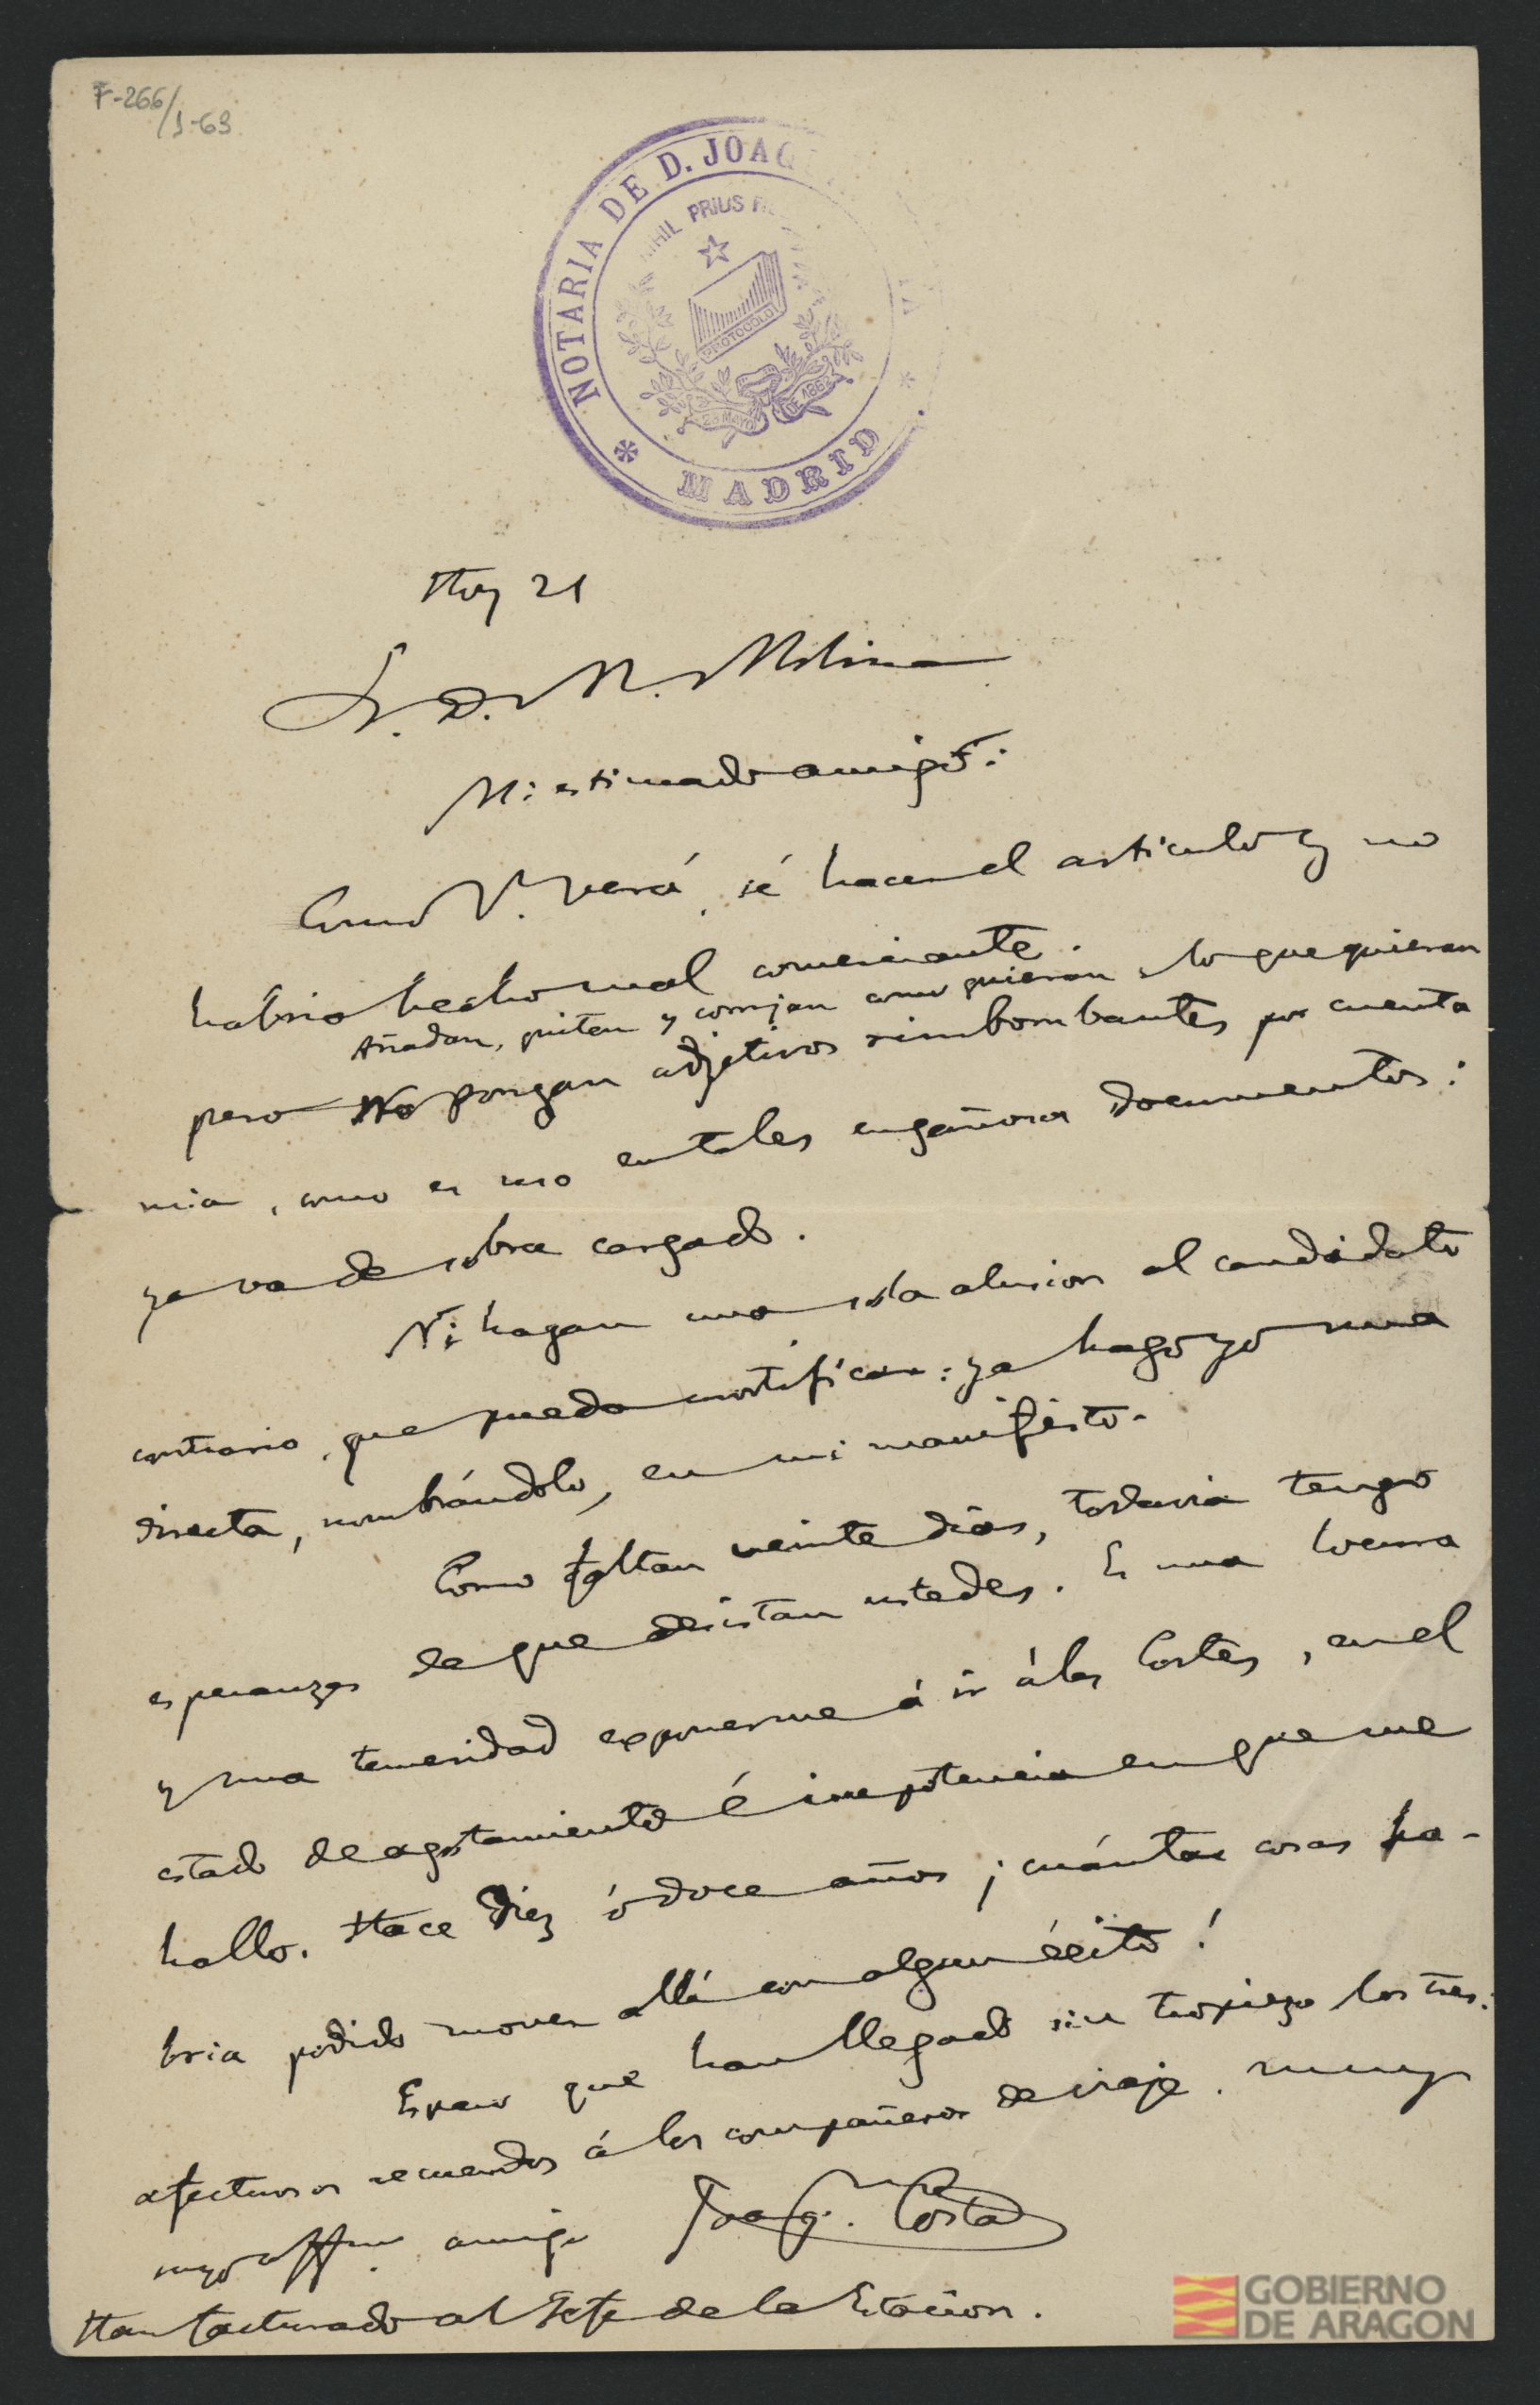 F-266/1-63
NOTARIA DE D. JOAQ
NIHIL PRIUS F
PROTOCOLO
28 MAYO DE 1862
* MADRID *
Hoy 21
S. D. M. Molina
Mi estimado amigo:
Como V. verá, sé hacer el articulo y no
habria hecho mal comerciante.
Añadan, quiten y corrijan como quieran y lo que quieran
pero No pongan adjetivos rimbombantes por cuenta
mia, como es uso en tales engañosos documentos:
ya va de sobra cargado.
Ni hagan una sola alusion al candidato
contrario, que pueda mortificar: ya hago yo una
directa, nombrándolo, en mi manifiesto.
Como faltan veinte dias, todavia tengo
esperanzas de que desistan ustedes. Es una locura
y una temeridad exponerme á ir á las Cortes, en el
estado de agotamiento é impotencia en que me
hallo. Hace diez ó doce años ¡cuántas cosas ha-
bria podido mover allí con algun éxito!
Espero que han llegado sin tropiezo los tres.
afectuosos recuerdos á los compañeros de viaje. muy
suyo affmo. amigo Joaqn. Costa
Han facturado al Jefe de la Estación.
GOBIERNO
DE ARAGON